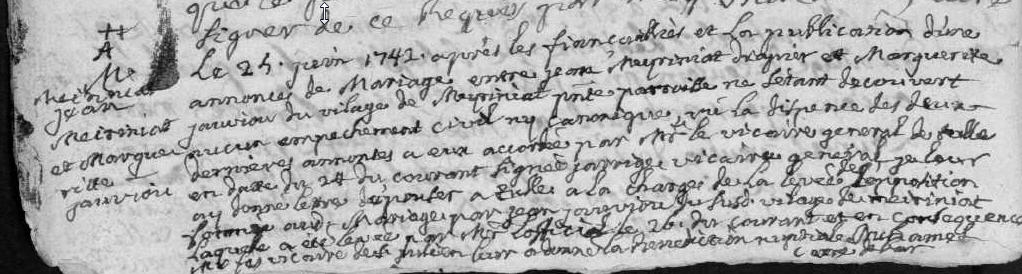 signer de ce requis
Le 25 juin 1742 après les fiançailles et la publication d'une
annonce de Mariage entre jean Meyriniat drapier et Marguerite
jauviou du vilage de Meyriniat pnte parroisse ne sétant decouvert
aucun empechement civil ny canonique, vû la dispence des deux
dernieres annonces a eux accordé par Mr le vicaire general de tulle
en datte du 24 du courant signée jarrige vicaire général je leur
ay donné lettre a tulle a la charge de la levée de l'opposition
Mariage par jean jauviou du susd. vilage de meiriniat
laquelle a eté levée par Mr l'official le 26 du courant et en consequence
vicaire de st julien leur a donné la benediction nuptiale Duhamel
curé
++
A
M
Meiriniat
jean
Meiriniat
et Margue
ritte
jauviou